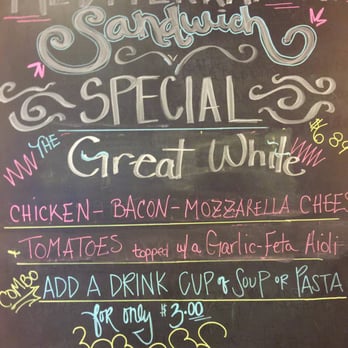 Sandwich
SPECIAL
THE Great White $6.89
CHICKEN - BACON - MOZZARELLA CHEES
+ TOMATOES topped w/ a Garlic-Feta Aioli-
COMBO ADD A DRINK CUP of SOUP OR PASTA
for only $3.00